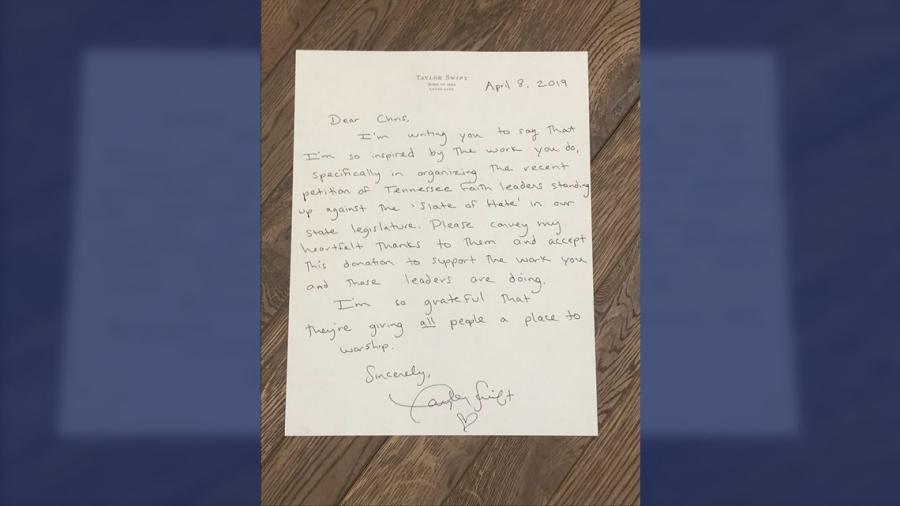 TAYLOR SWIFT
April 8, 2019
Dear Chris,
I'm writing you to say that
I'm so inspired by the work you do,
specifically in organizing the recent
petition of Tennessee Faith leaders standing
up against the 'Slate of Hate' in our
state legislature. Please convey my
heartfelt thanks to them and accept
this donation to support the work you
and those leaders are doing.
I'm so grateful that
they're giving all people a place to
worship.
Sincerely,
Taylor Swift